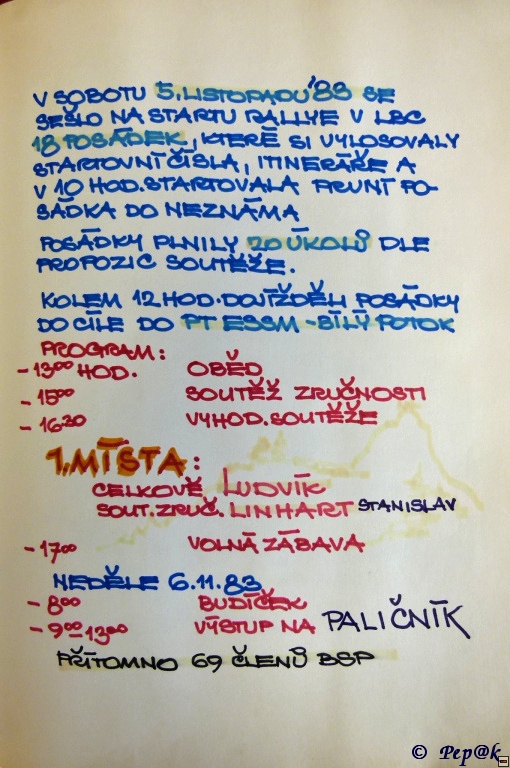 V SOBOTU 5. LISTOPADU '83 SE
SEŠLO NA STARTU RALLYE V LBC
18 POSÁDEK, KTERÉ SI VYLOSOVALY
STARTOVNÍ ČÍSLA, ITINERÁŘE A
V 10 HOD. STARTOVALA PRVNÍ PO-
SÁDKA DO NEZNÁMA
POSÁDKY PLNILY 20 ÚKOLŮ DLE
PROPOZIC SOUTĚŽE.
KOLEM 12 HOD. DOJÍŽDĚLI POSÁDKY
DO CÍLE DO PT ESSM - BÍLÝ POTOK
PROGRAM:
- 13⁰⁰ HOD. OBĚD
- 15⁰⁰ SOUTĚŽ ZRUČNOSTI
- 16³⁰ VYHOD. SOUTĚŽE
1. MÍSTA:
CELKOVĚ LUDVÍK
SOUT. ZRUČ. LINHART STANISLAV
- 17⁰⁰ VOLNÁ ZÁBAVA
NEDĚLE 6.11.83
- 8⁰⁰ BUDÍČEK
- 9⁰⁰-13⁰⁰ VÝSTUP NA PALIČNÍK
PŘÍTOMNO 69 ČLENŮ BSP
© Pep@k